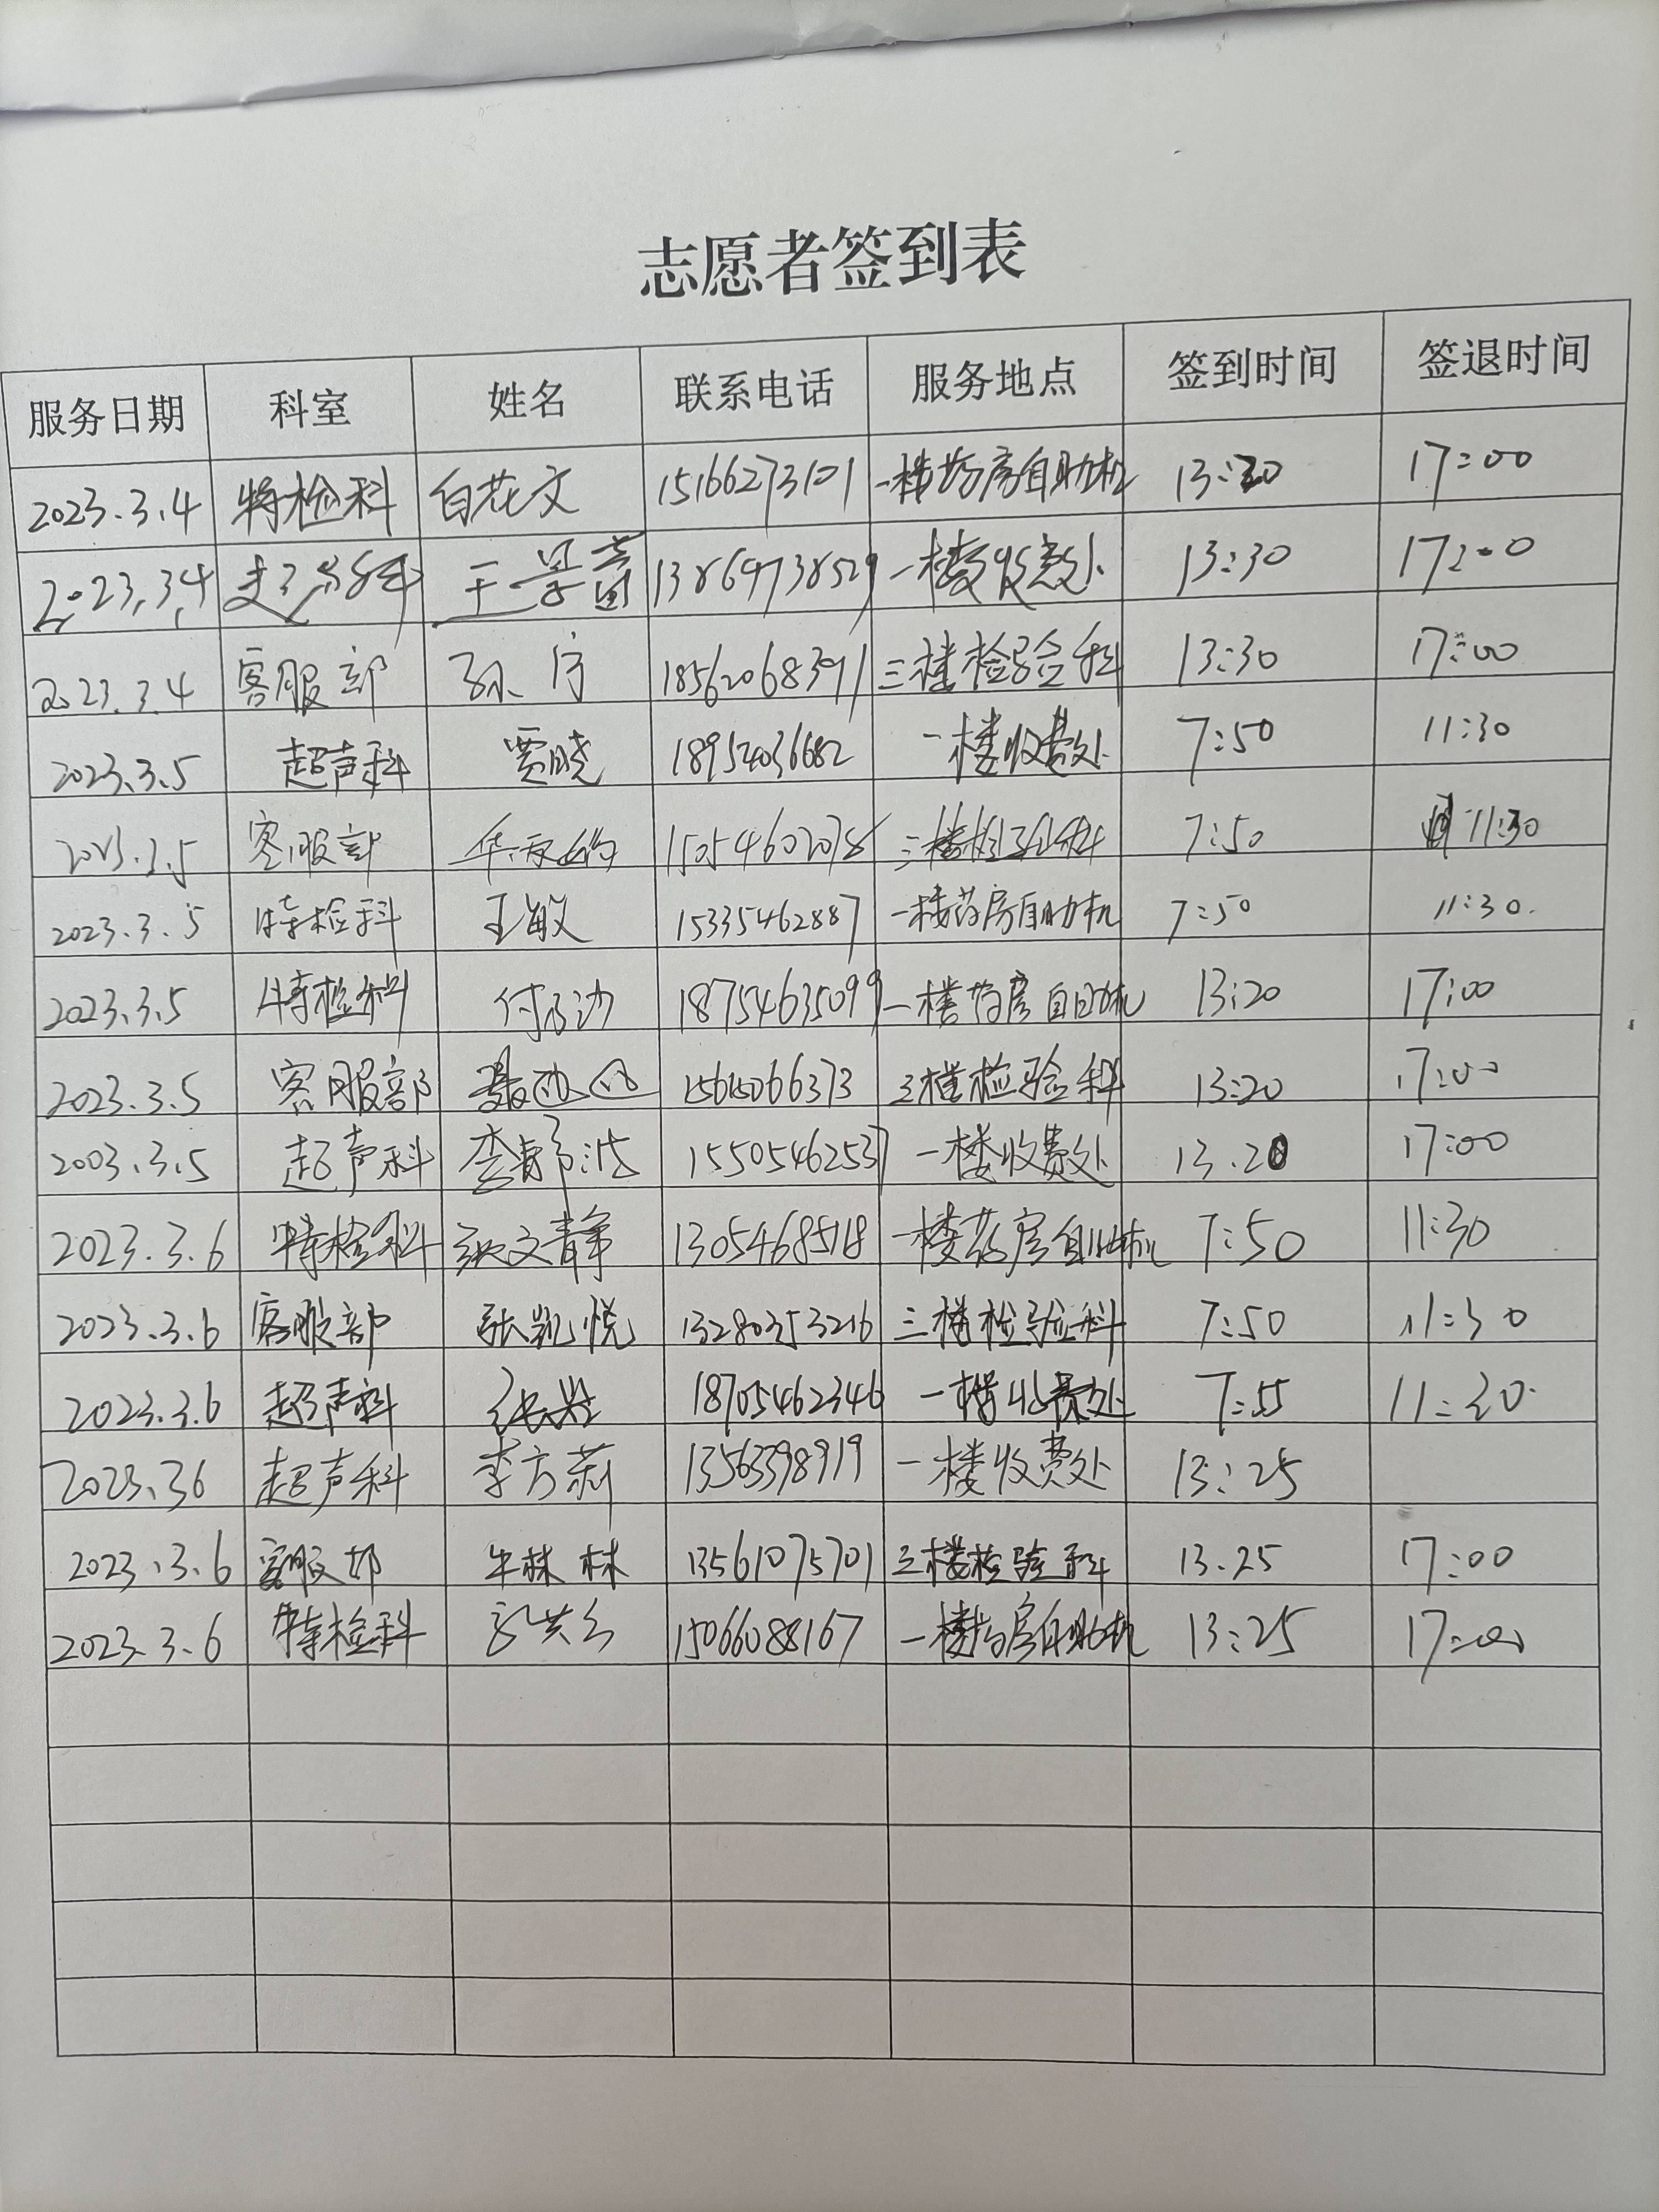 志愿者签到表
服务日期 科室 姓名 联系电话 服务地点 签到时间 签退时间
2023.3.4 特检科 白花文 15166273101 一楼药房自助机 13:30 17:00
2023.3.4 超声科 王景 13864738529 一楼收费处 13:30 17:00
2023.3.4 客服部 孙 18562068391 三楼检验科 13:30 17:00
2023.3.5 超声科 贾晓 18954036682 一楼收费处 7:50 11:30
2023.3.5 客服部 15054602078 三楼检验科 7:50 11:30
2023.3.5 特检科 王敏 15335462887 一楼药房自助机 7:50 11:30.
2023.3.5 特检科 付 18754635099 一楼药房自助机 13:20 17:00
2023.3.5 客服部 15615066373 三楼检验科 13:20 17:00
2003.3.5 超声科 李 15505462537 一楼收费处 13.20 17:00
2023.3.6 特检科 张文静 13054685118 一楼药房自助机 7:50 11:30
2023.3.6 客服部 张凯悦 13280353216 三楼检验科 7:50 11:30
2023.3.6 超声科 张 18705462346 一楼收费处 7:55 11:30.
2023.36 超声科 李方莉 13563398919 一楼收费处 13:25
2023.3.6 客服部 牛林林 13561075701 三楼检验科 13.25 17:00
2023.3.6 特检科 15066088167 一楼药房自助机 13:25 17:00